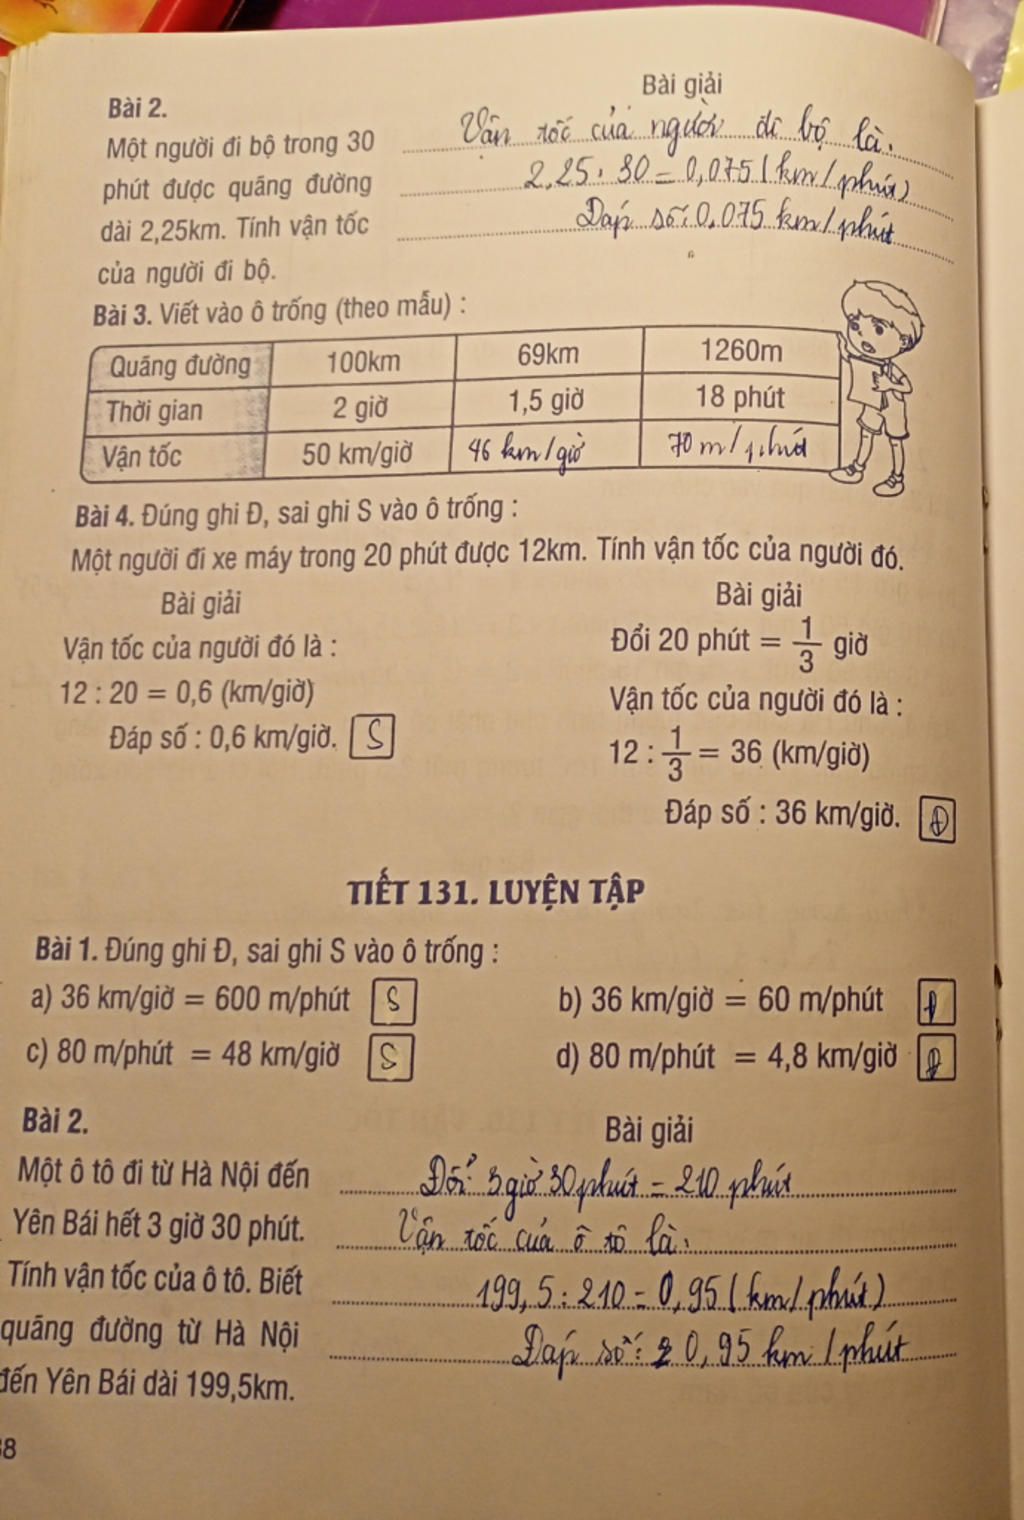 Bài 2.
Một người đi bộ trong 30
phút được quãng đường
dài 2,25km. Tính vận tốc
của người đi bộ.
Bài giải
Vận tốc của người đi bộ là:
2,25 : 30 = 0,075 (km/phút)
Đáp số: 0,075 km/phút
Bài 3. Viết vào ô trống (theo mẫu) :
Quãng đường 100km 69km 1260m
Thời gian 2 giờ 1,5 giờ 18 phút
Vận tốc 50 km/giờ 46 km/giờ 70 m/phút
Bài 4. Đúng ghi Đ, sai ghi S vào ô trống :
Một người đi xe máy trong 20 phút được 12km. Tính vận tốc của người đó.
Bài giải
Vận tốc của người đó là :
12 : 20 = 0,6 (km/giờ)
Đáp số : 0,6 km/giờ. S
Bài giải
Đổi 20 phút = 1/3 giờ
Vận tốc của người đó là :
12 : 1/3 = 36 (km/giờ)
Đáp số : 36 km/giờ. Đ
TIẾT 131. LUYỆN TẬP
Bài 1. Đúng ghi Đ, sai ghi S vào ô trống :
a) 36 km/giờ = 600 m/phút S
b) 36 km/giờ = 60 m/phút Đ
c) 80 m/phút = 48 km/giờ S
d) 80 m/phút = 4,8 km/giờ Đ
Bài 2.
Một ô tô đi từ Hà Nội đến
Yên Bái hết 3 giờ 30 phút.
Tính vận tốc của ô tô. Biết
quãng đường từ Hà Nội
đến Yên Bái dài 199,5km.
Bài giải
Đổi 3 giờ 30 phút = 210 phút
Vận tốc của ô tô là:
199,5 : 210 = 0,95 (km/phút)
Đáp số: 0,95 km/phút